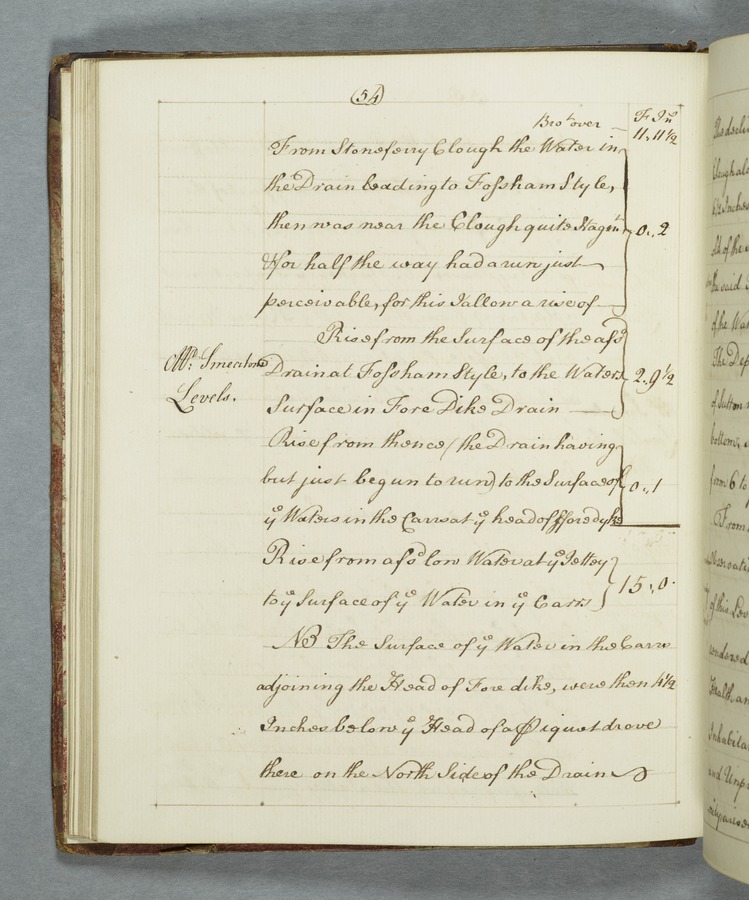 (54)
Brot over F In
11,, 11 1/2
From Stoneferry Clough the Water in
the Drain leading to Fossham Style,
then was near the Clough quite Stagnt 0,, 2
& for half the way had a run just
perceivable, for this I allow a rise of
Rise from the Surface of the afsd
Mr. Smeatons Drain at Fossham Style, to the Waters 2,, 9 1/2
Levels. Surface in Fore Dike Drain
Rise from thence (the Drain having
but just begun to run) to the Surface of 0,, 1
ye Waters in the Carrs at ye head of ffore dyke
Rise from afsd low Water at ye Jettey
to ye Surface of ye Water in ye Carrs 15,, 0
NB The Surface of ye Water in the Carrs
adjoining the Head of Fore dike, were then 4 1/2
Inches below ye Head of a Piquet drove
there on the North Side of the Drain